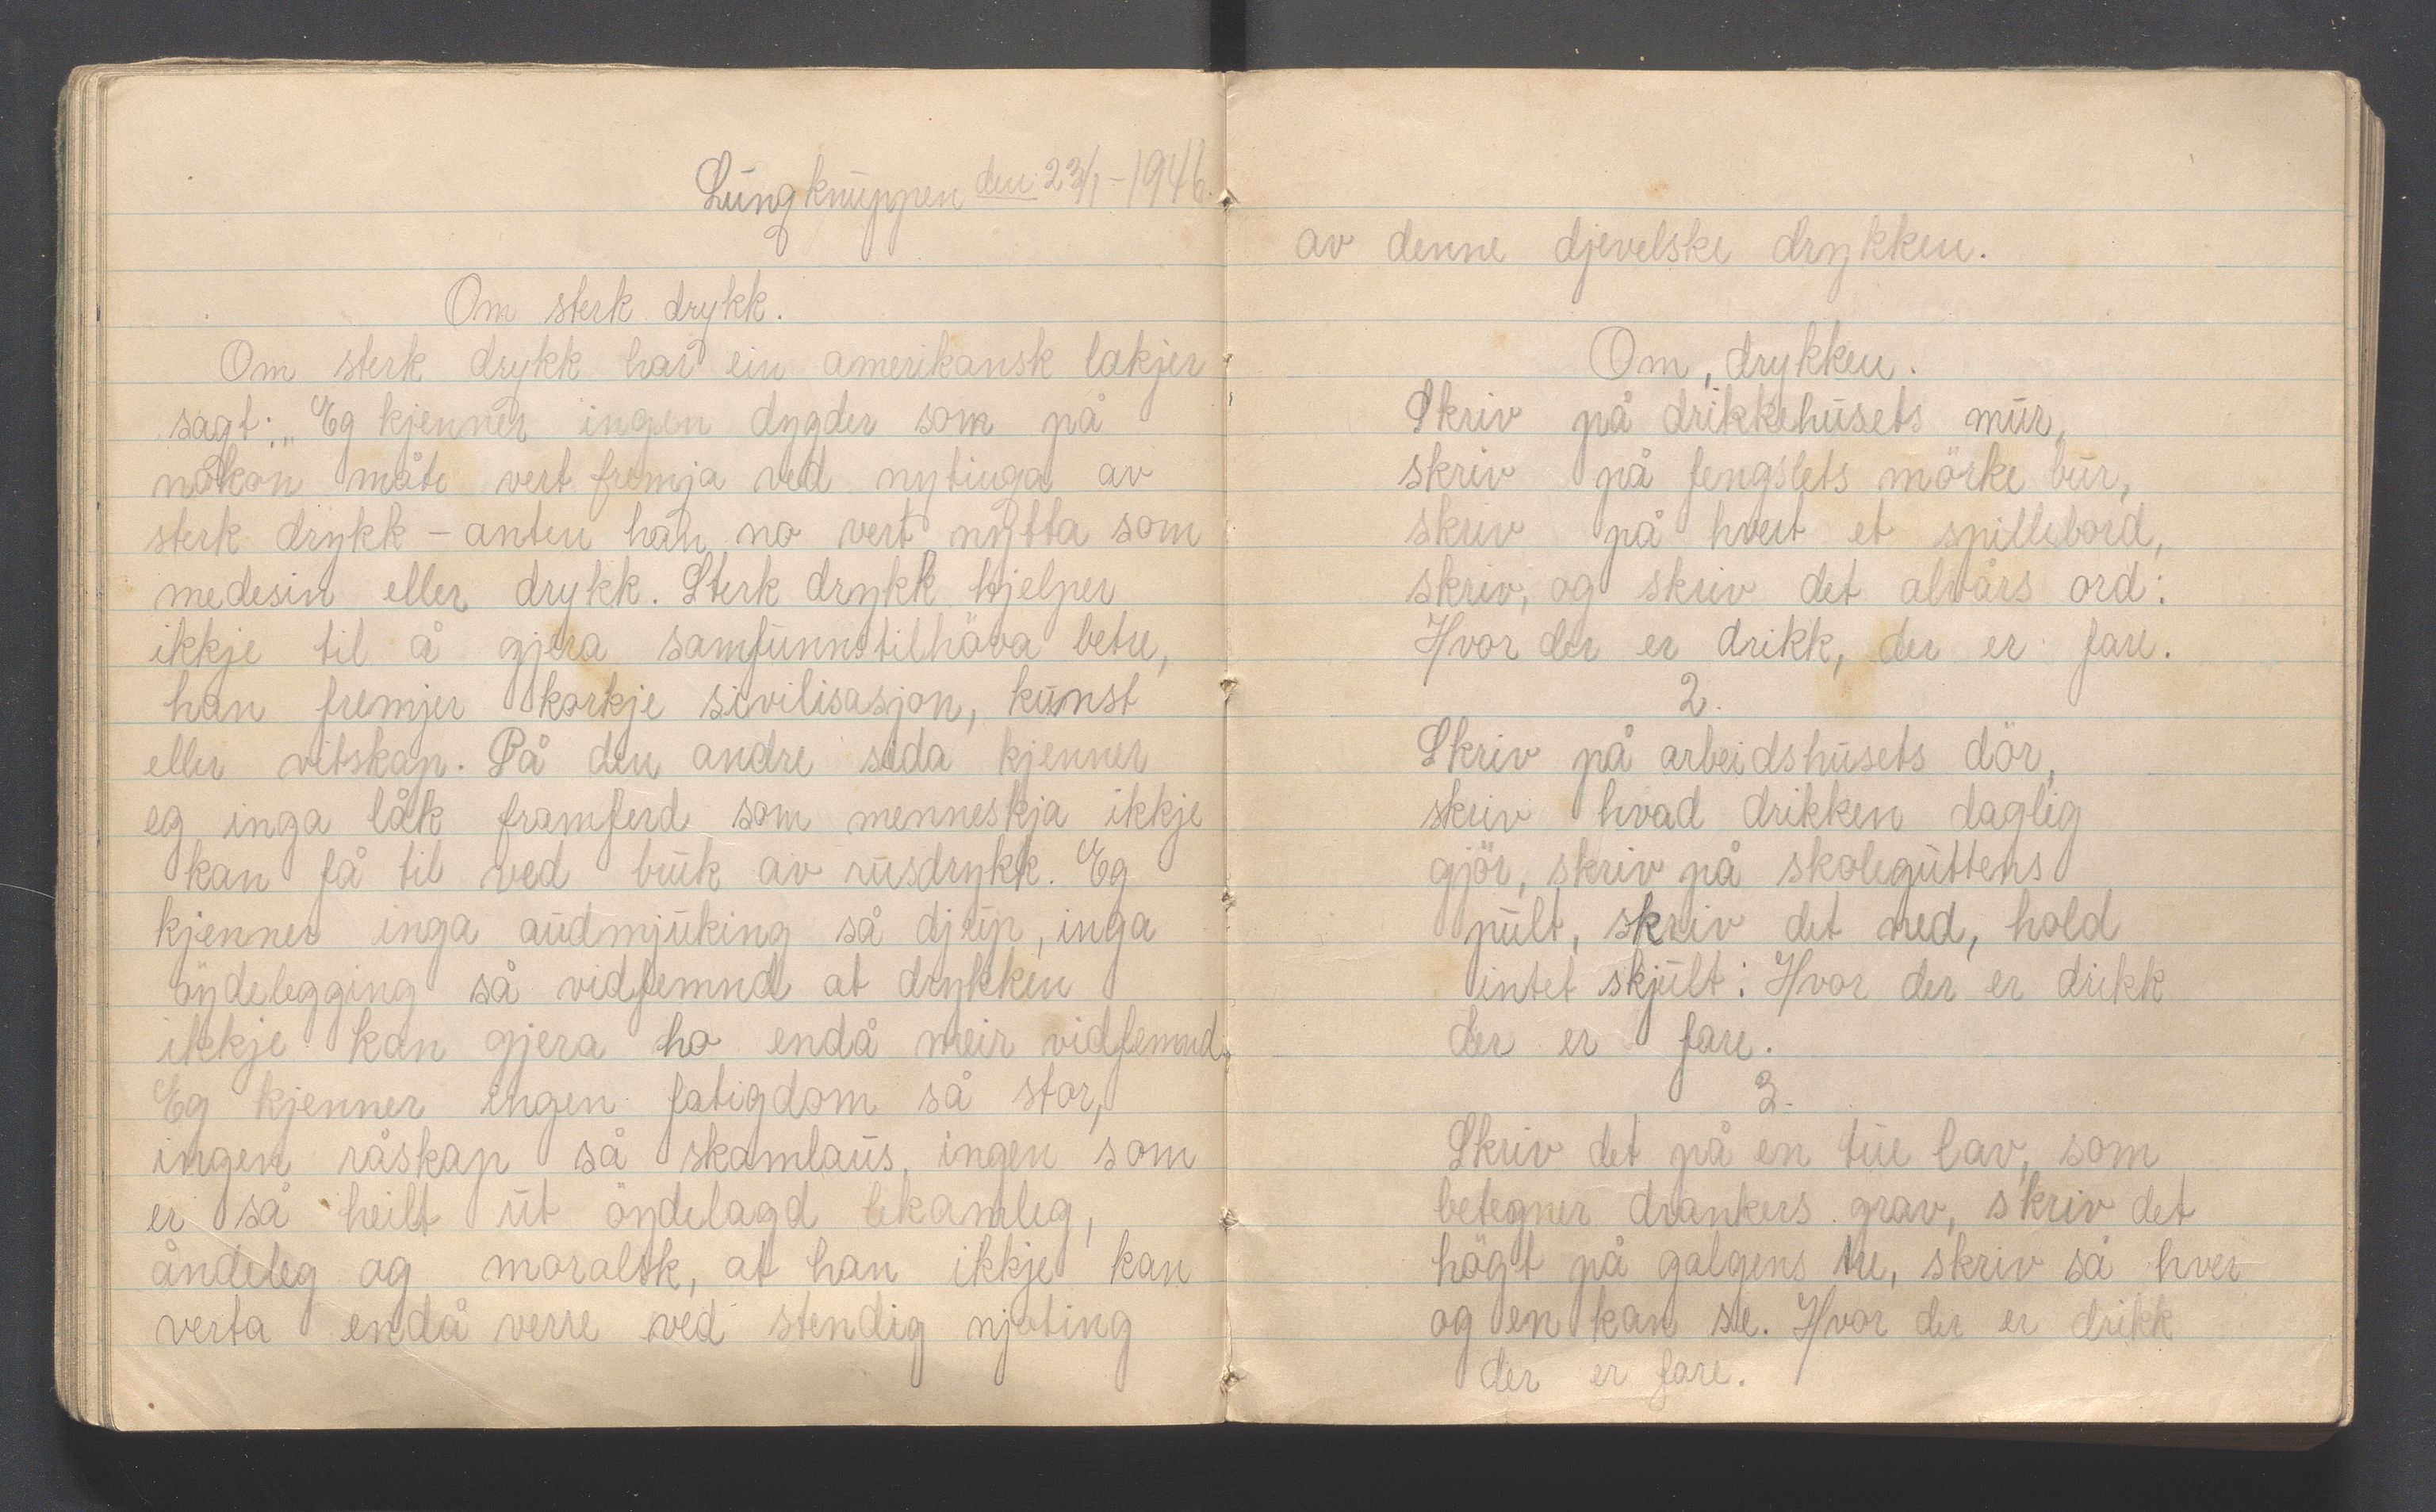 Lungknuppen den 23/1-1946.
Om sterk drykk.
Om sterk drykk har ein amerikansk lækjer
sagt: „Eg kjenner ingen dygder som på
nokon måte vert fremja ved nytinga av
sterk drykk – anten han no vert nytta som
medesin eller drykk. Sterk drykk hjelper
ikkje til å gjera samfunnstilhöva betre,
han fremjer korkje sivilisasjon, kunst
eller vitskap. På den andre sida kjenner
eg inga låk framferd som menneskja ikkje
kan få til ved bruk av rusdrykk. Eg
kjenner inga audmjuking så djup, inga
öydelegging så vidfemnd at drykken
ikkje kan gjera ho endå meir vidfemnd.
Eg kjenner ingen fatigdom så stor,
ingen råskap så skamlaus, ingen som
er så heilt ut öydelagd lekamleg,
åndeleg og moralsk, at han ikkje kan
verta endå verre ved stendig njoting
av denne djevelske drykken.
Om, drykken.
Skriv på drikkehusets mur,
skriv på fengslets mörke bur,
skriv på hvert et spillebord,
skriv, og skriv det alvårs ord:
Hvor der er drikk, der er fare.
2.
Skriv på arbeidshusets dör,
skriv hvad drikken daglig
gjör, skriv på skoleguttens
pult, skriv det ned, hold
intet skjult: Hvor der er drikk
der er fare.
3.
Skriv det på en tue lav, som
betegner drankers grav, skriv det
högt på galgens tre, skriv så hver
og en kan se. Hvor der er drikk
der er fare.